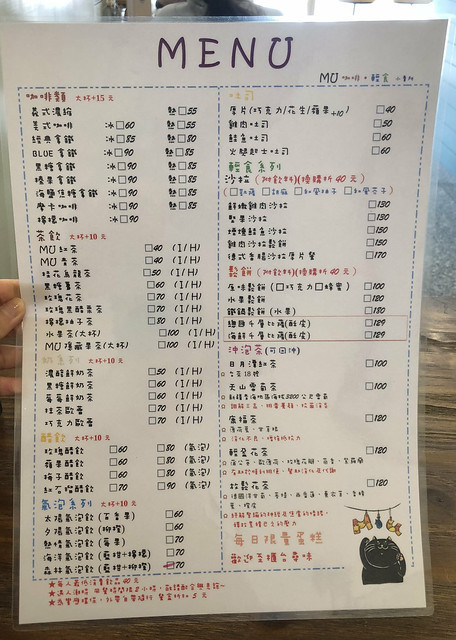 MENU
MU 咖啡・輕食
咖啡類 大杯+15元
義式濃縮 熱□55
美式咖啡 冰□60 熱□55
經典拿鐵 冰□85 熱□80
BLUE 拿鐵 冰□90 熱□85
黑糖拿鐵 冰□90 熱□85
榛果拿鐵 冰□90 熱□85
海鹽焦糖拿鐵 冰□90 熱□85
摩卡咖啡 冰□90 熱□85
檸檬咖啡 冰□90
茶飲 大杯+10元
MU 紅茶 □40 (I/H)
MU 青茶 □40 (I/H)
桂花烏龍茶 □50 (I/H)
黑糖薑茶 □60 (I/H)
玫瑰花茶 □70 (I/H)
玫瑰黑醋栗茶 □70 (I/H)
檸檬柚子茶 □80 (I/H)
水果茶(大杯) □100 (I/H)
MU 隱藏果茶(大杯) □100 (I/H)
奶素列 大杯+10元
濃醇鮮奶茶 □50 (I/H)
黑糖鮮奶茶 □60 (I/H)
莓莓鮮奶茶 □60 (I/H)
抹茶歐蕾 □70 (I/H)
巧克力歐蕾 □70 (I/H)
醋飲 大杯+10元
玫瑰醋飲 □60 □80 (氣泡)
蘋果醋飲 □60 □80 (氣泡)
梅子醋飲 □60 □80 (氣泡)
紅石榴醋飲 □70 □90 (氣泡)
氣泡系列 大杯+10元
太陽氣泡飲(百香果) □60
夕陽氣泡飲(柳橙) □60
熱情氣泡飲(莓果) □60
海洋氣泡飲(藍柑+檸檬) □70
森林氣泡飲(藍柑+柳橙) □70
★每人最低消費飲品40元
吐司
厚片(巧克力/花生/蘋果+10) □40
雞肉吐司 □50
鮪魚吐司 □60
火腿起士吐司 □60
輕食系列
沙拉(附飲料)(換購折40元)
鮮嫩雞肉沙拉 □130
堅果沙拉 □130
煙燻鮭魚沙拉 □150
雞肉沙拉鬆餅 □150
德式香腸沙拉厚片餐 □170
鬆餅(附飲料)(換購折40元)
原味鬆餅(□巧克力□蜂蜜) □100
水果鬆餅 □120
鐵鍋鬆餅(水果) □180
總匯千層比薩(酥皮) □129
海鮮千層比薩(酥皮) □129
沖泡茶(可回沖)
日月潭紅茶 □100
□台茶18號
天山雪菊茶 □100
焦福茶 □120
輕盈花茶 □120
放鬆花茶 □120
每日限量蛋糕
歡迎至櫃台尋味